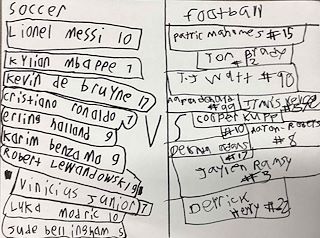 soccer
Lionel messi 10
kylian mbappe 7
kevin de bruyne 17
cristiano ronaldo 7
erling halland 9
karim benzama 9
Robert Lewandowski 9
Vinicius Junior 7
Luka modric 10
Jude bellingham 5
V
football
patric mahomes #15
Tom Brady
#12
T.J Watt #90
#99
Travis kelce
cooper kupp
#10
Aaron Rogers
#8
#17
Jaylen Ramsy
#5
Derrick
Henry #22